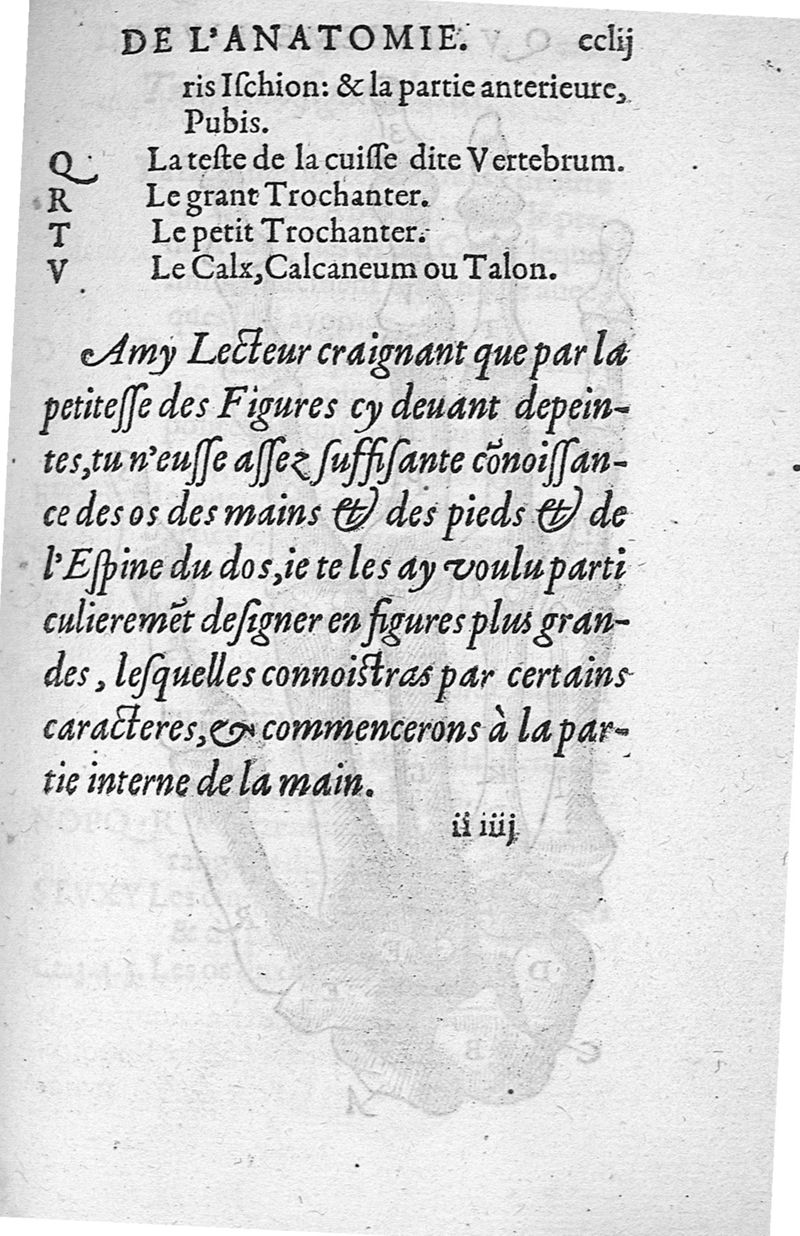 DE L'ANATOMIE. cclij
ris Iſchion: & la partie anterieure,
Pubis.
Q La teſte de la cuiſſe dite Vertebrum.
R Le grant Trochanter.
T Le petit Trochanter.
V Le Calx, Calcaneum ou Talon.
Amy Lecteur craignant que par la
petiteſſe des Figures cy deuant depein-
tes, tu n'euſſe aſſez ſuffiſante cõnoiſſan-
ce des os des mains & des pieds & de
l'Eſpine du dos, ie te les ay voulu parti
culieremẽt deſigner en figures plus gran-
des, leſquelles connoiſtras par certains
caracteres, & commencerons à la par-
tie interne de la main.
ii iiij